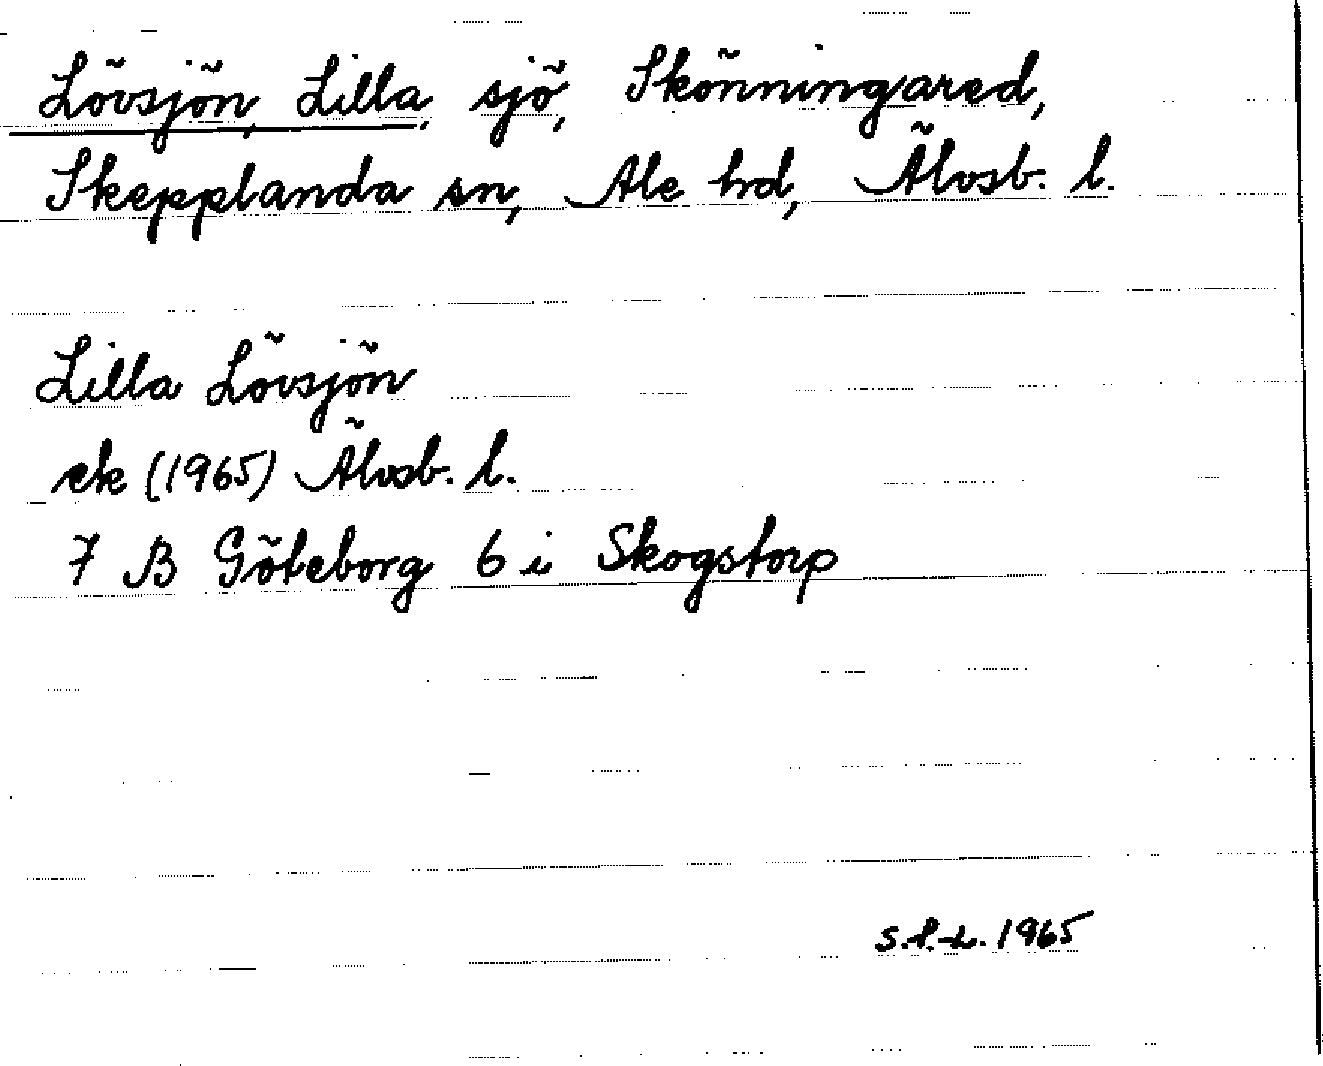 Lövsjön, Lilla, sjö, Skönningared,
Skepplanda sn, Ale hd, Älvsb. l.
Lilla Lövsjön
ek (1965) Älvsb. l.
7 B Göteborg 6 i Skogstorp
S.P-L. 1965